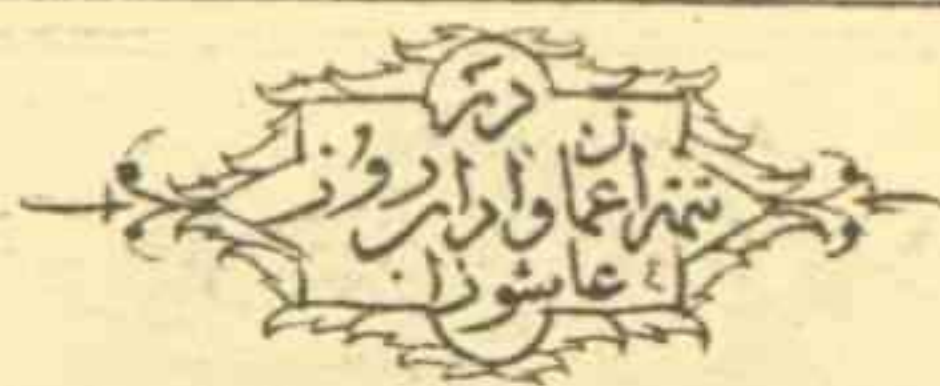 در
تتمه اعمال و اداب روز
عاشورا